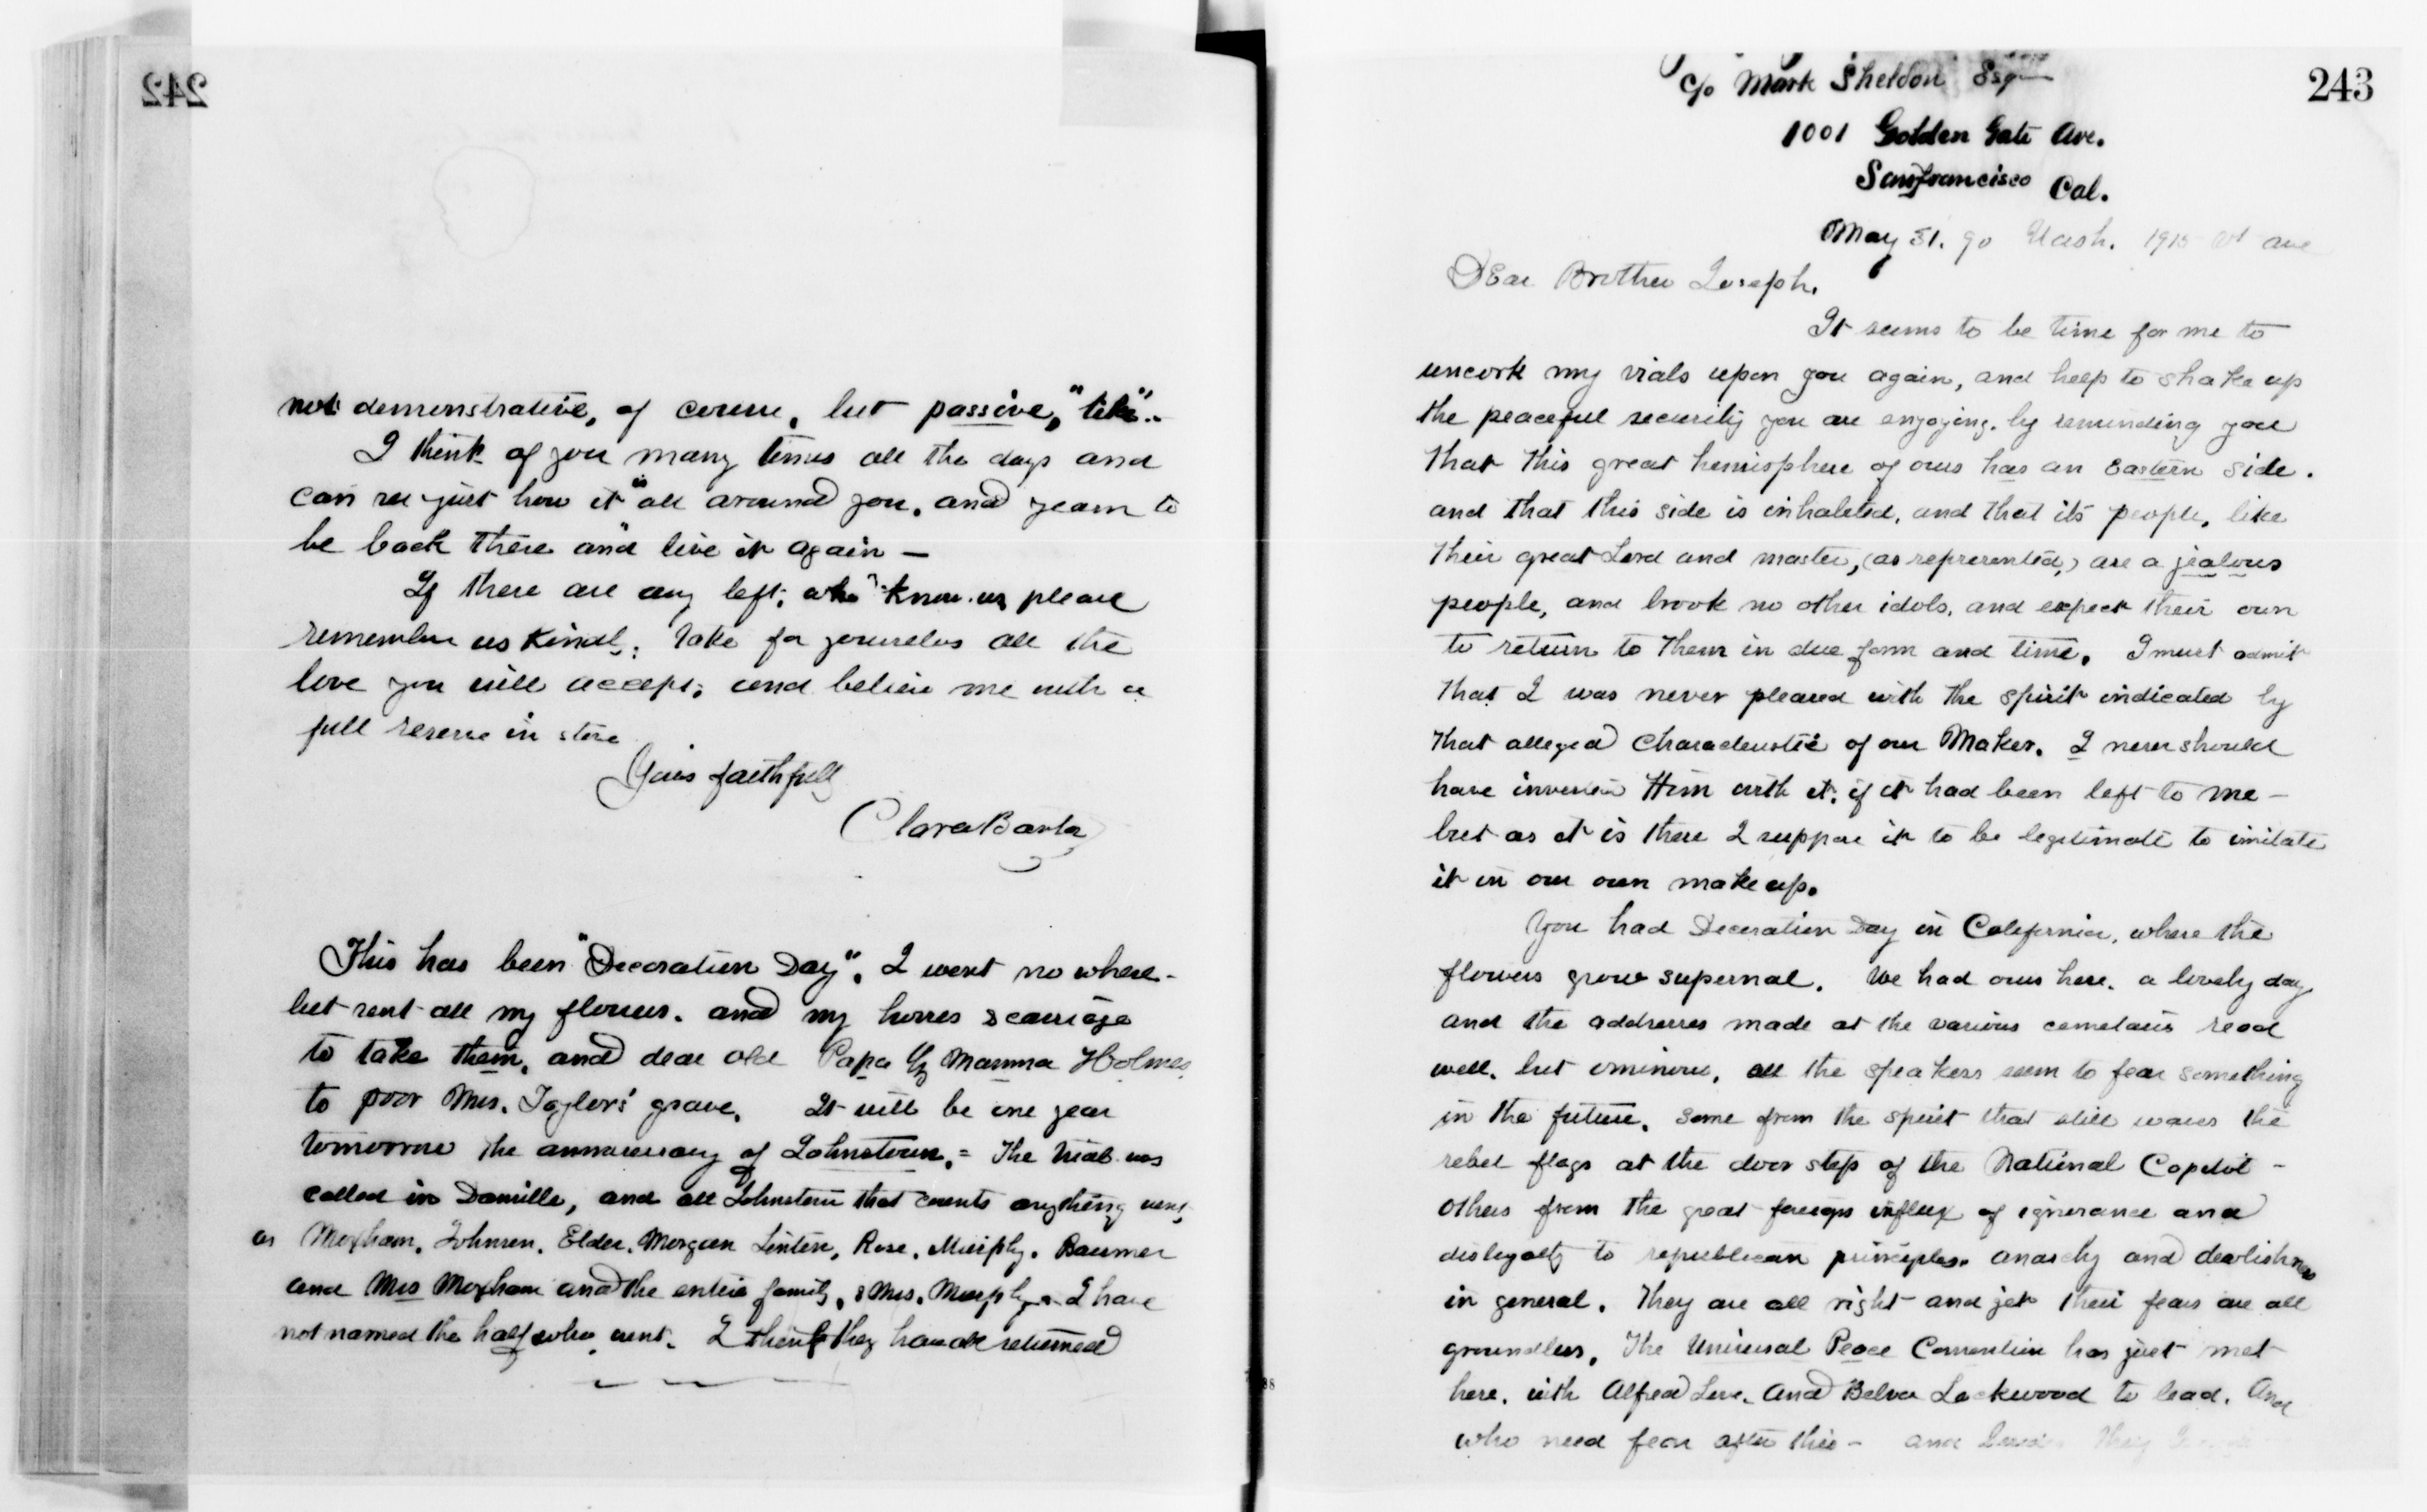 242
not demonstrative, of course, but passive, "like".
I think of you many times all the days and
can see just how it is all around you, and yearn to
be back there and live it again —
If there are any left, who "know" us please
remember us kindly. Take for yourselves all the
love you will accept; and believe me with a
full reserve in store
Yours faithfully
Clara Barton
This has been "Decoration Day". I went no where -
but sent all my flowers. and my horses & carriage
to take them, and dear old Papa & Mamma Holmes
to poor Mrs. Taylors' grave. It will be one year
tomorrow the anniversary of Johnstown. = The trial was
called in Danville, and all Johnstown that counts anything went,
as Moxham, Johnson, Elder, Morgan Linten, Rose, Murphy. Baumer
and Mrs Moxham and the entire family, & Mrs. Murphy - I have
not named the half who went. I think they have all returned
243
c/o Mark Sheldon Esq
1001 Golden Gate Ave.
Sanfrancisco Cal.
May 31. 90 Wash. 1915 Vt ave
Dear Brother Joseph.
It seems to be time for me to
uncork my vials upon you again, and help to shake up
the peaceful security you are enjoying, by reminding you
that this great hemisphere of ours has an Eastern side.
and that this side is inhabited, and that its people, like
their great Lord and master, (as represented,) are a jealous
people, and brook no other idols, and expect their own
to return to them in due form and time. I must admit
that I was never pleased with the spirit indicated by
that alleged Characteristic of our Maker. I never should
have invested Him with it, if it had been left to me —
but as it is there I suppose it to be legitimate to imitate
it in our own make up.
You had Decoration Day in California, where the
flowers grow supernal. We had ours here. a lovely day
and the addresses made at the various cemetaries read
well, but ominous, all the speakers seem to fear something
in the future, some from the spirit that still waves the
rebel flags at the door step of the National Capitol —
others from the great foreign influx of ignorance and
disloyalty to republican principles. anarchy and devlishness
in general. They are all right and yet their fears are all
groundless. The Universal Peace Convention has just met
here, with Alfred Love, And Belva Lockwood to lead. And
who need fear after this — and they